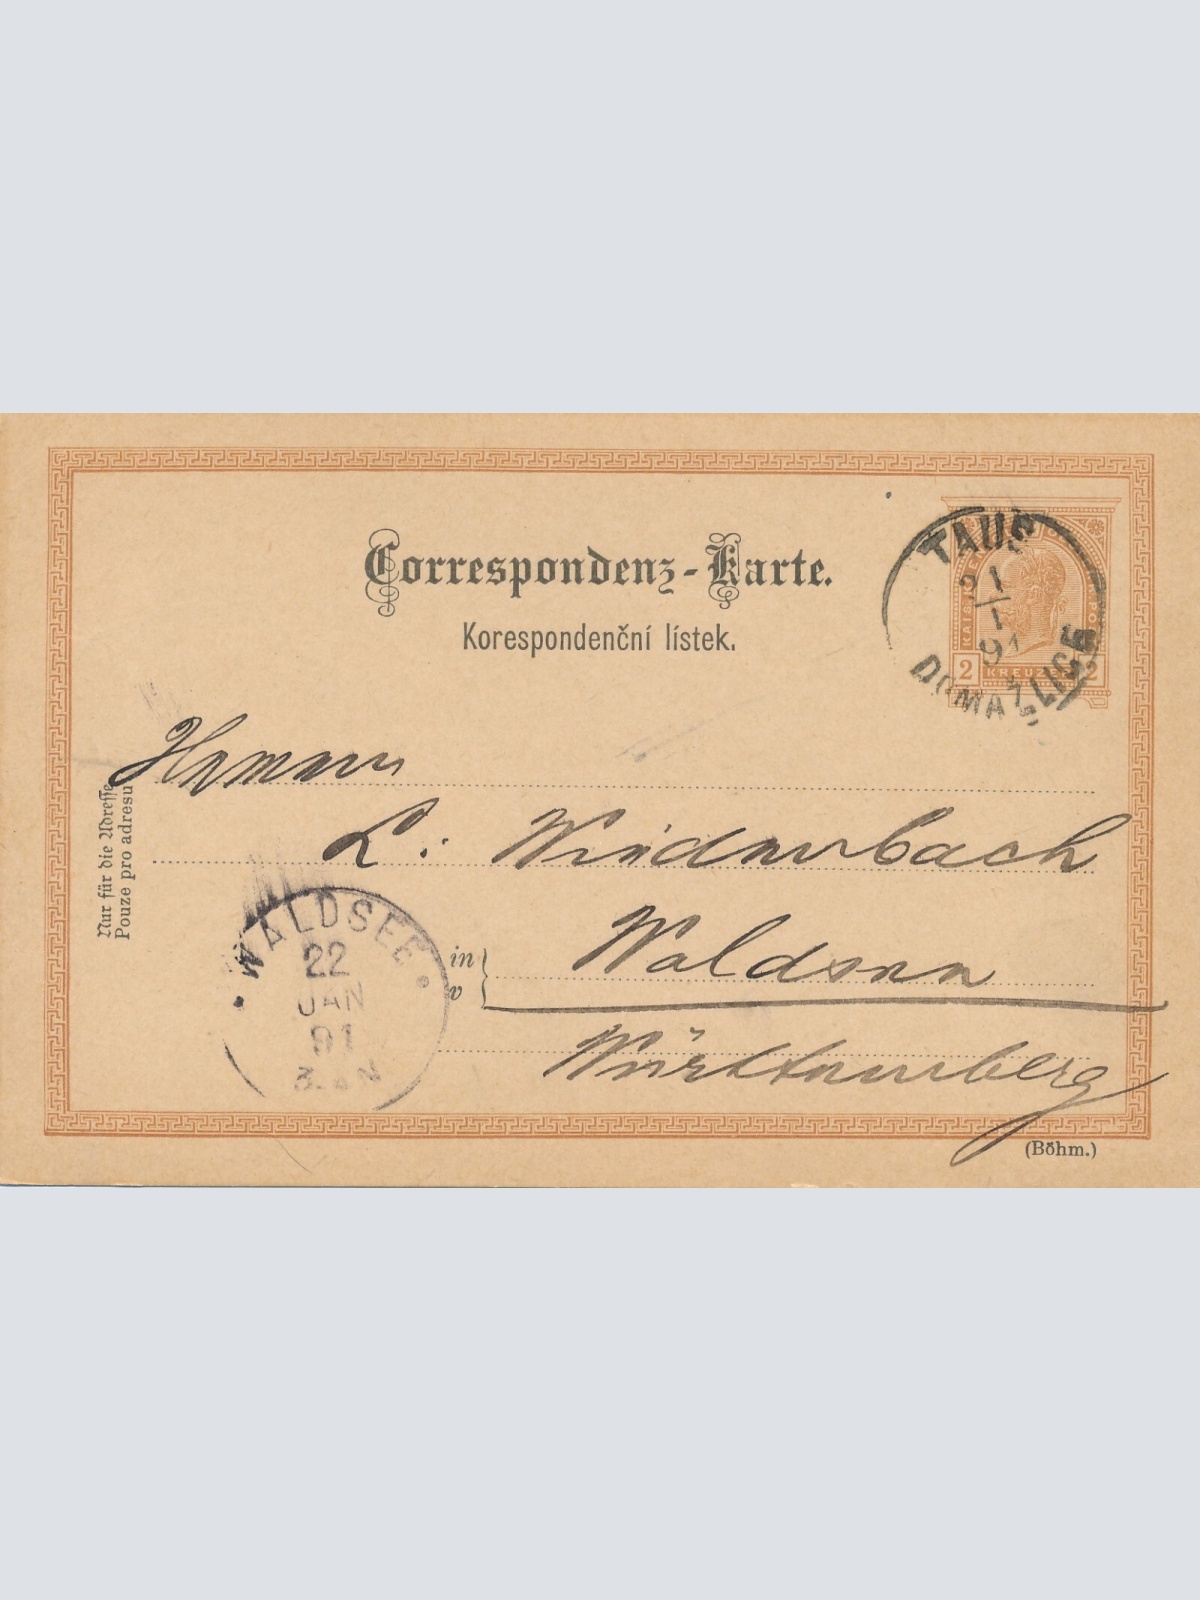 Correspondenz-Karte.
Korespondenční lístek.
TAUS
21
1
91
DOMAŽLICE
2 KREUZ 2
Nur für die Adresse
Pouze pro adresu
Herrn
L.
WALDSEE
22
JAN
91
3. N
in
v
Waldsee
Württemberg
(Böhm.)